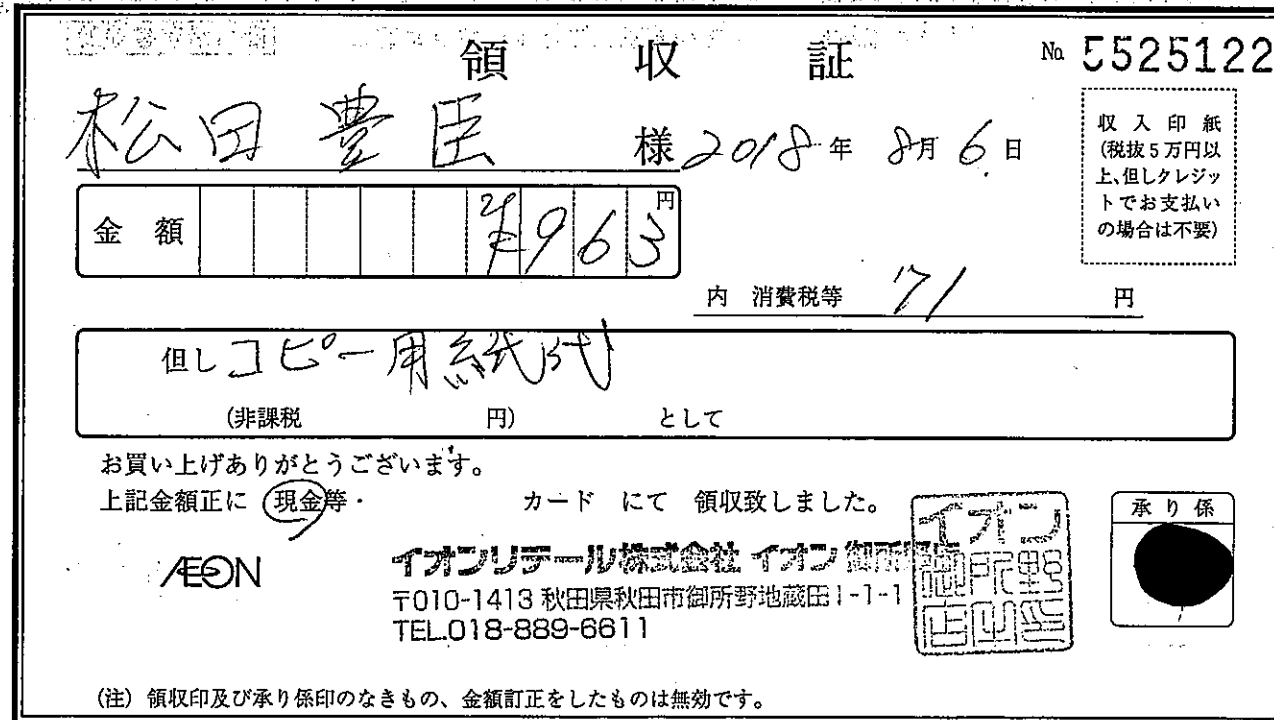 領 収 証
№ 5525122
松田 豊臣 様 2018年 8月 6日
収 入 印 紙
(税抜5万円以
上、但しクレジッ
トでお支払い
の場合は不要)
金 額 ¥963円
内 消費税等 71 円
但し コピー用紙代
(非課税 円) として
お買い上げありがとうございます。
上記金額正に 現金等・ カード にて 領収致しました。
承り係
ÆON
イオンリテール株式会社 イオン 御所野店
〒010-1413 秋田県秋田市御所野地蔵田1-1-1
TEL.018-889-6611
イオン
御所野
店
(注) 領収印及び承り係印のなきもの、金額訂正をしたものは無効です。